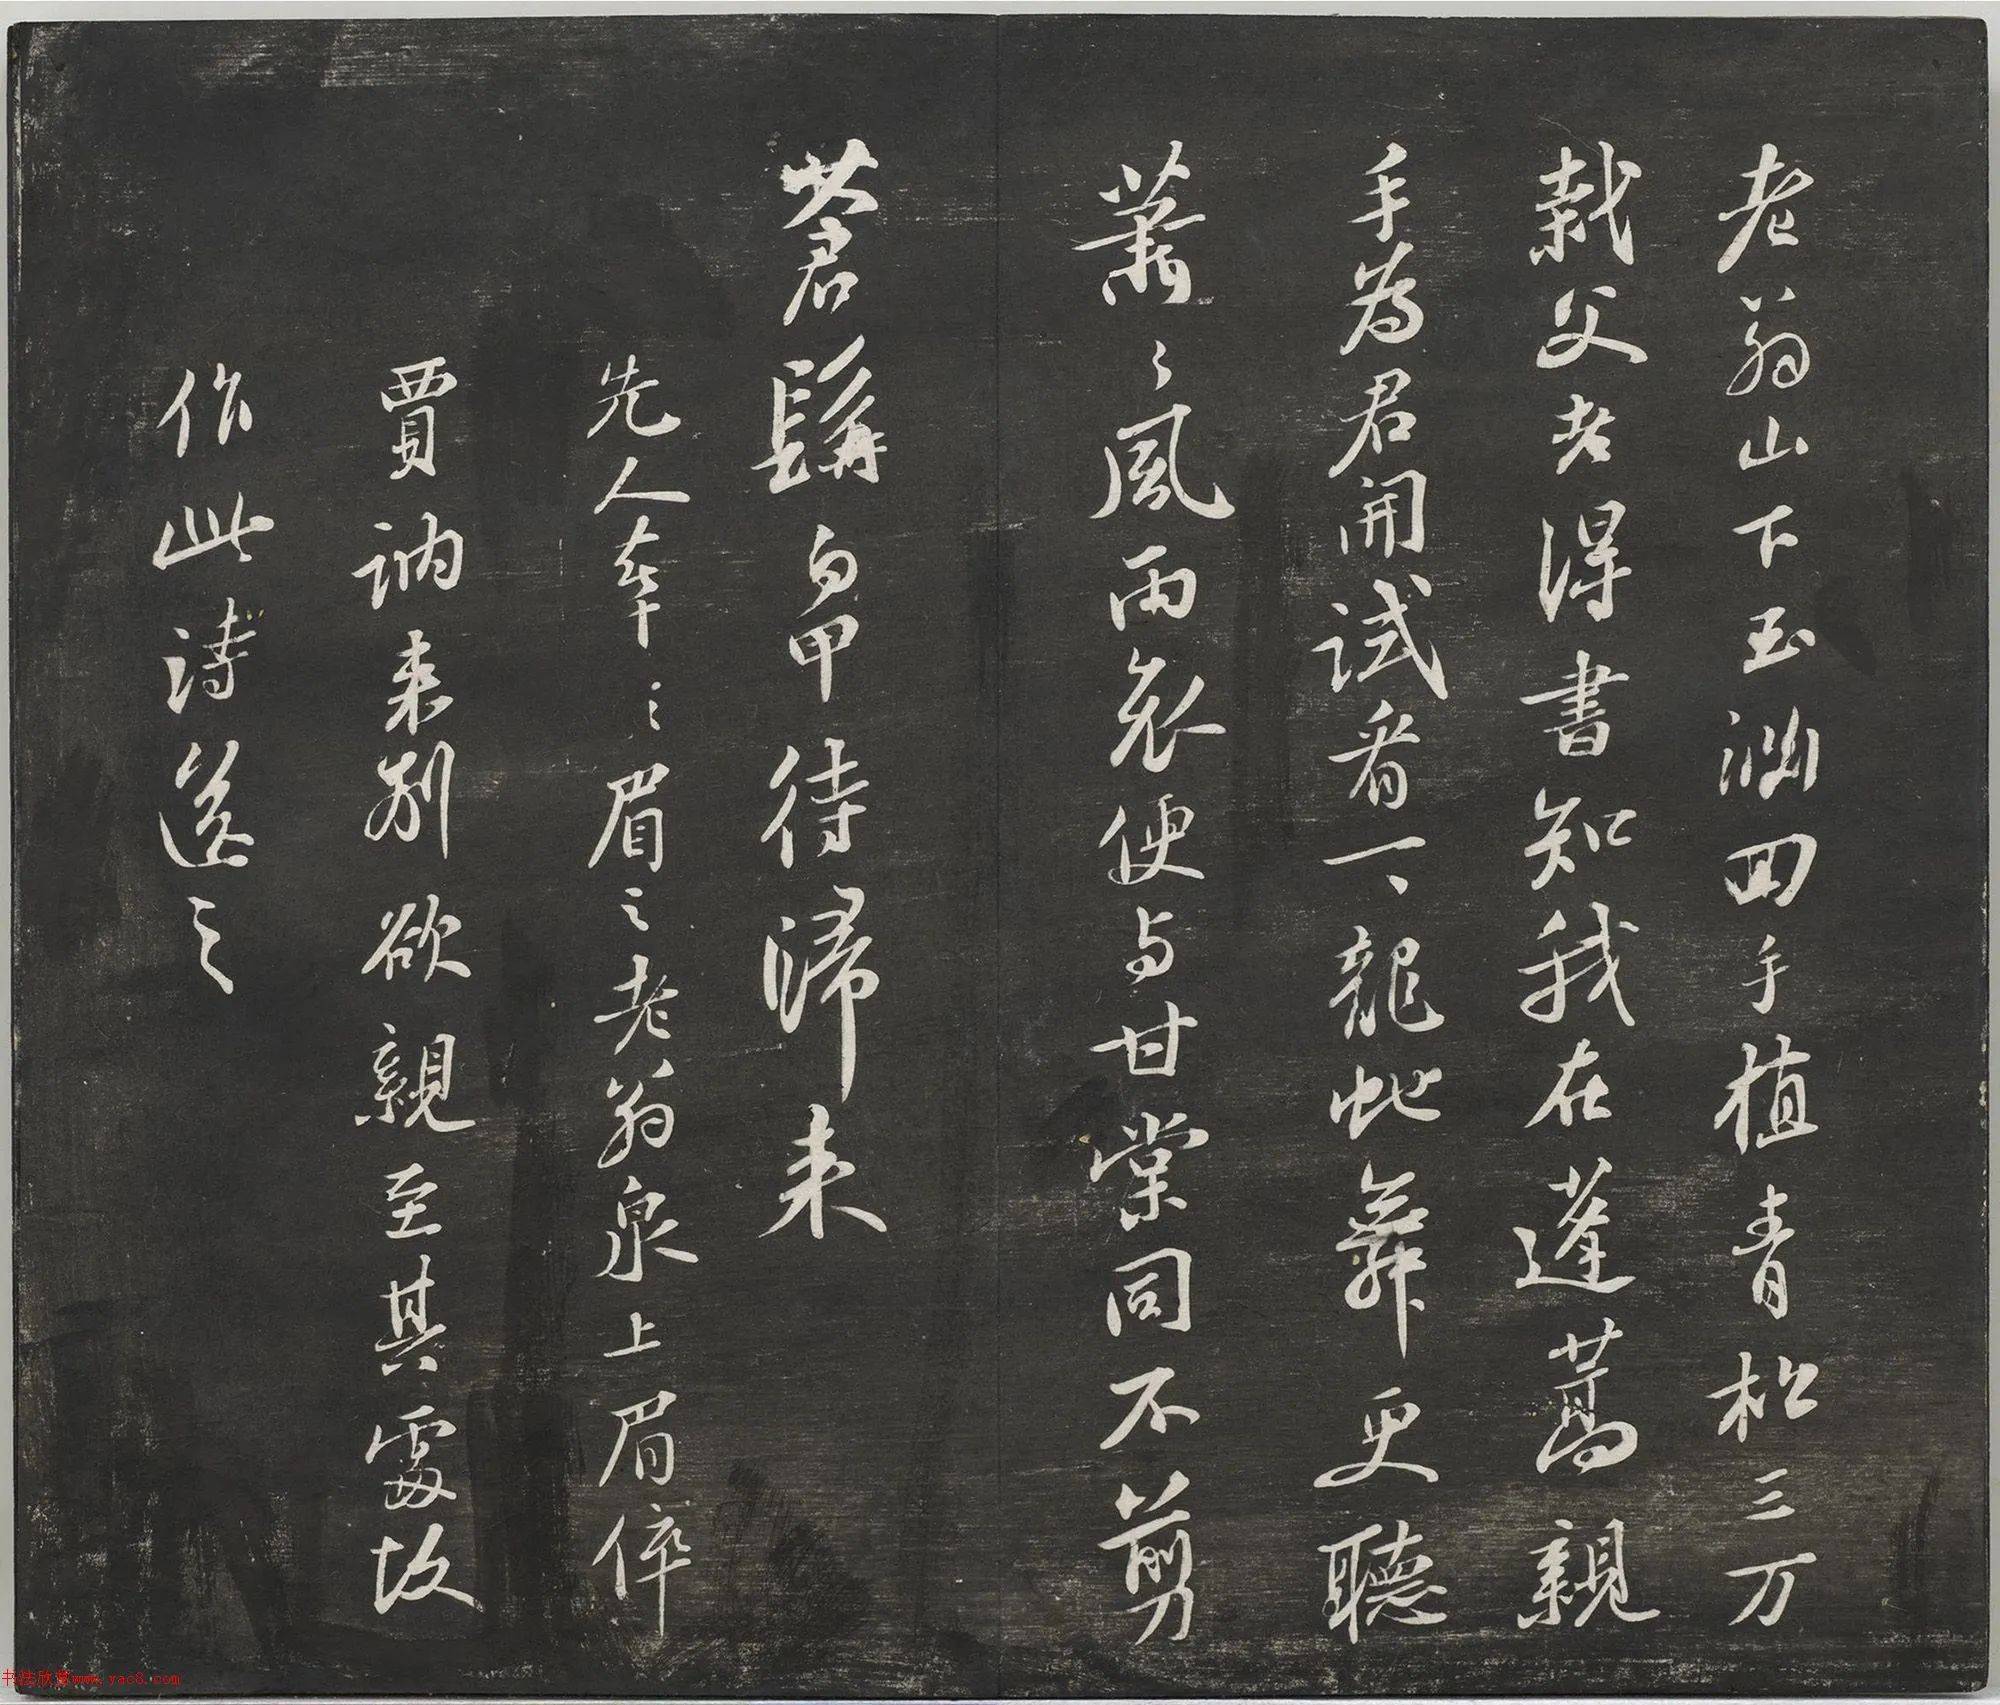 老翁山下玉渊回手植青松三万
栽父老得書知我在蓬蒿親
手為君開試看一一龍蛇舞更聽
蕭〻風雨哀便与甘棠同不剪
蒼髯白甲待歸来
先人葬之眉之老翁泉上眉倅
賈訥来別欲親至其處故
作此詩送之
书法欣赏www.yac8.com